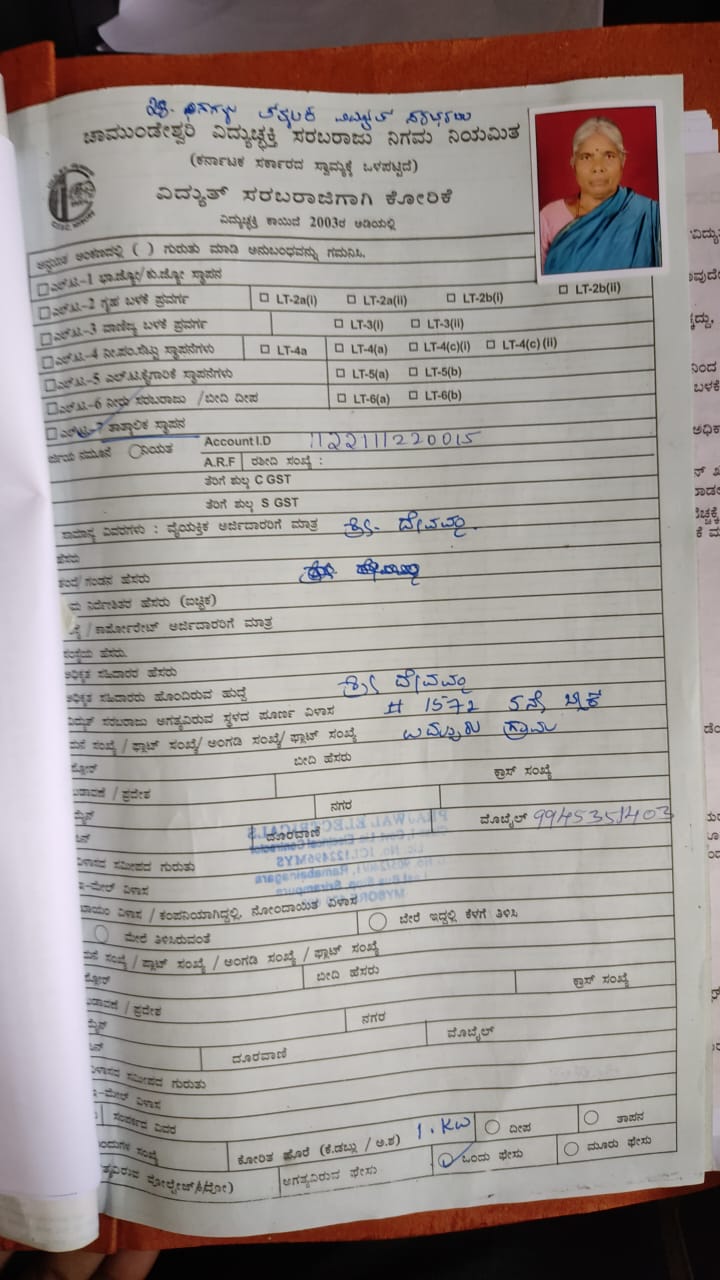 28. ದಿನಗಳ ತತ್ಕಾಲಿಕ ವಿದ್ಯುತ್ ಸರಬರಾಜು
ಚಾಮುಂಡೇಶ್ವರಿ ವಿದ್ಯುಚ್ಛಕ್ತಿ ಸರಬರಾಜು ನಿಗಮ ನಿಯಮಿತ
(ಕರ್ನಾಟಕ ಸರ್ಕಾರದ ಸ್ವಾಮ್ಯಕ್ಕೆ ಒಳಪಟ್ಟಿದೆ)
ವಿದ್ಯುತ್ ಸರಬರಾಜಿಗಾಗಿ ಕೋರಿಕೆ
ವಿದ್ಯುಚ್ಛಕ್ತಿ ಕಾಯಿದೆ 2003ರ ಅಡಿಯಲ್ಲಿ
ಅನ್ವಯಿತ ಅಂಕಣದಲ್ಲಿ ( ) ಗುರುತು ಮಾಡಿ ಅನುಬಂಧವನ್ನು ಗಮನಿಸಿ.
ಎಲ್.ಟಿ.-1 ಭಾ.ಜ್ಯೋ/ಕು.ಜ್ಯೋ ಸ್ಥಾಪನ
ಎಲ್.ಟಿ.-2 ಗೃಹ ಬಳಕೆ ಪ್ರವರ್ಗ LT-2a(i) LT-2a(ii) LT-2b(i) LT-2b(ii)
ಎಲ್.ಟಿ.-3 ವಾಣಿಜ್ಯ ಬಳಕೆ ಪ್ರವರ್ಗ LT-3(i) LT-3(ii)
ಎಲ್.ಟಿ.-4 ನೀ.ಪಂ.ಸೆಟ್ಟು ಸ್ಥಾಪನೆಗಳು LT-4a LT-4(a) LT-4(c)(i) LT-4(c) (ii)
ಎಲ್.ಟಿ.-5 ಎಲ್.ಟಿ.ಕೈಗಾರಿಕೆ ಸ್ಥಾಪನೆಗಳು LT-5(a) LT-5(b)
ಎಲ್.ಟಿ.-6 ನೀರು ಸರಬರಾಜು /ಬೀದಿ ದೀಪ LT-6(a) LT-6(b)
ಎಲ್.ಟಿ.-7 ತಾತ್ಕಾಲಿಕ ಸ್ಥಾಪನ
ನಮೂನೆ ನಿಯತ Account I.D 1122111220015
A.R.F ರಶೀದಿ ಸಂಖ್ಯೆ :
ತೆರಿಗೆ ಶುಲ್ಕ C GST
ತೆರಿಗೆ ಶುಲ್ಕ S GST
ಸಾಮಾನ್ಯ ವಿವರಗಳು : ವೈಯಕ್ತಿಕ ಅರ್ಜಿದಾರರಿಗೆ ಮಾತ್ರ ಶ್ರೀ. ದೇವಮ್ಮ
ಹೆಸರು
ತಂದೆ/ಗಂಡನ ಹೆಸರು
ನಿರ್ದೇಶಿತರ ಹೆಸರು (ಐಚ್ಛಿಕ)
/ ಕಾರ್ಪೋರೇಟ್ ಅರ್ಜಿದಾರರಿಗೆ ಮಾತ್ರ
ಸಂಸ್ಥೆಯ ಹೆಸರು.
ಅಧಿಕೃತ ಸಹಿದಾರರ ಹೆಸರು
ಅಧಿಕೃತ ಸಹಿದಾರರು ಹೊಂದಿರುವ ಹುದ್ದೆ ಶ್ರೀ ದೇವಮ್ಮ
ವಿದ್ಯುತ್ ಸರಬರಾಜು ಅಗತ್ಯವಿರುವ ಸ್ಥಳದ ಪೂರ್ಣ ವಿಳಾಸ # 1572 5ನೇ ಬ್ಲಾಕ್
ಮನೆ ಸಂಖ್ಯೆ / ಫ್ಲಾಟ್ ಸಂಖ್ಯೆ/ ಅಂಗಡಿ ಸಂಖ್ಯೆ/ ಫ್ಲಾಟ್ ಸಂಖ್ಯೆ ಗ್ರಾಮ
ಬೀದಿ ಹೆಸರು
ಬಡಾವಣೆ / ಪ್ರದೇಶ ಕ್ರಾಸ್ ಸಂಖ್ಯೆ
ನಗರ
ದೂರವಾಣಿ ಮೊಬೈಲ್ 9945351403
PRAJWAL ELECTRICALS
ವಿಳಾಸದ ಸಮೀಪದ ಗುರುತು
ಇ-ಮೇಲ್ ವಿಳಾಸ
ಖಾಯಂ ವಿಳಾಸ / ಕಂಪನಿಯಾಗಿದ್ದಲ್ಲಿ, ನೋಂದಾಯಿತ ವಿಳಾಸ
ಮೇಲೆ ತಿಳಿಸಿರುವಂತೆ ಬೇರೆ ಇದ್ದಲ್ಲಿ ಕೆಳಗೆ ತಿಳಿಸಿ
ಮನೆ ಸಂಖ್ಯೆ / ಪ್ಲಾಟ್ ಸಂಖ್ಯೆ / ಅಂಗಡಿ ಸಂಖ್ಯೆ / ಫ್ಲಾಟ್ ಸಂಖ್ಯೆ
ಬೀದಿ ಹೆಸರು
ಬಡಾವಣೆ / ಪ್ರದೇಶ ಕ್ರಾಸ್ ಸಂಖ್ಯೆ
ನಗರ
ದೂರವಾಣಿ ಮೊಬೈಲ್
ವಿಳಾಸದ ಸಮೀಪದ ಗುರುತು
ಇ-ಮೇಲ್ ವಿಳಾಸ
ಸಂಪರ್ಕದ ವಿವರ
ಸಂಖ್ಯೆ ಕೋರಿತ ಹೊರೆ (ಕಿ.ಡಬ್ಲ್ಯು / ಅ.ಶ) 1. KW ದೀಪ ತಾಪನ
ಅಗತ್ಯವಿರುವ ಫೇಸು ಒಂದು ಫೇಸು ಮೂರು ಫೇಸು